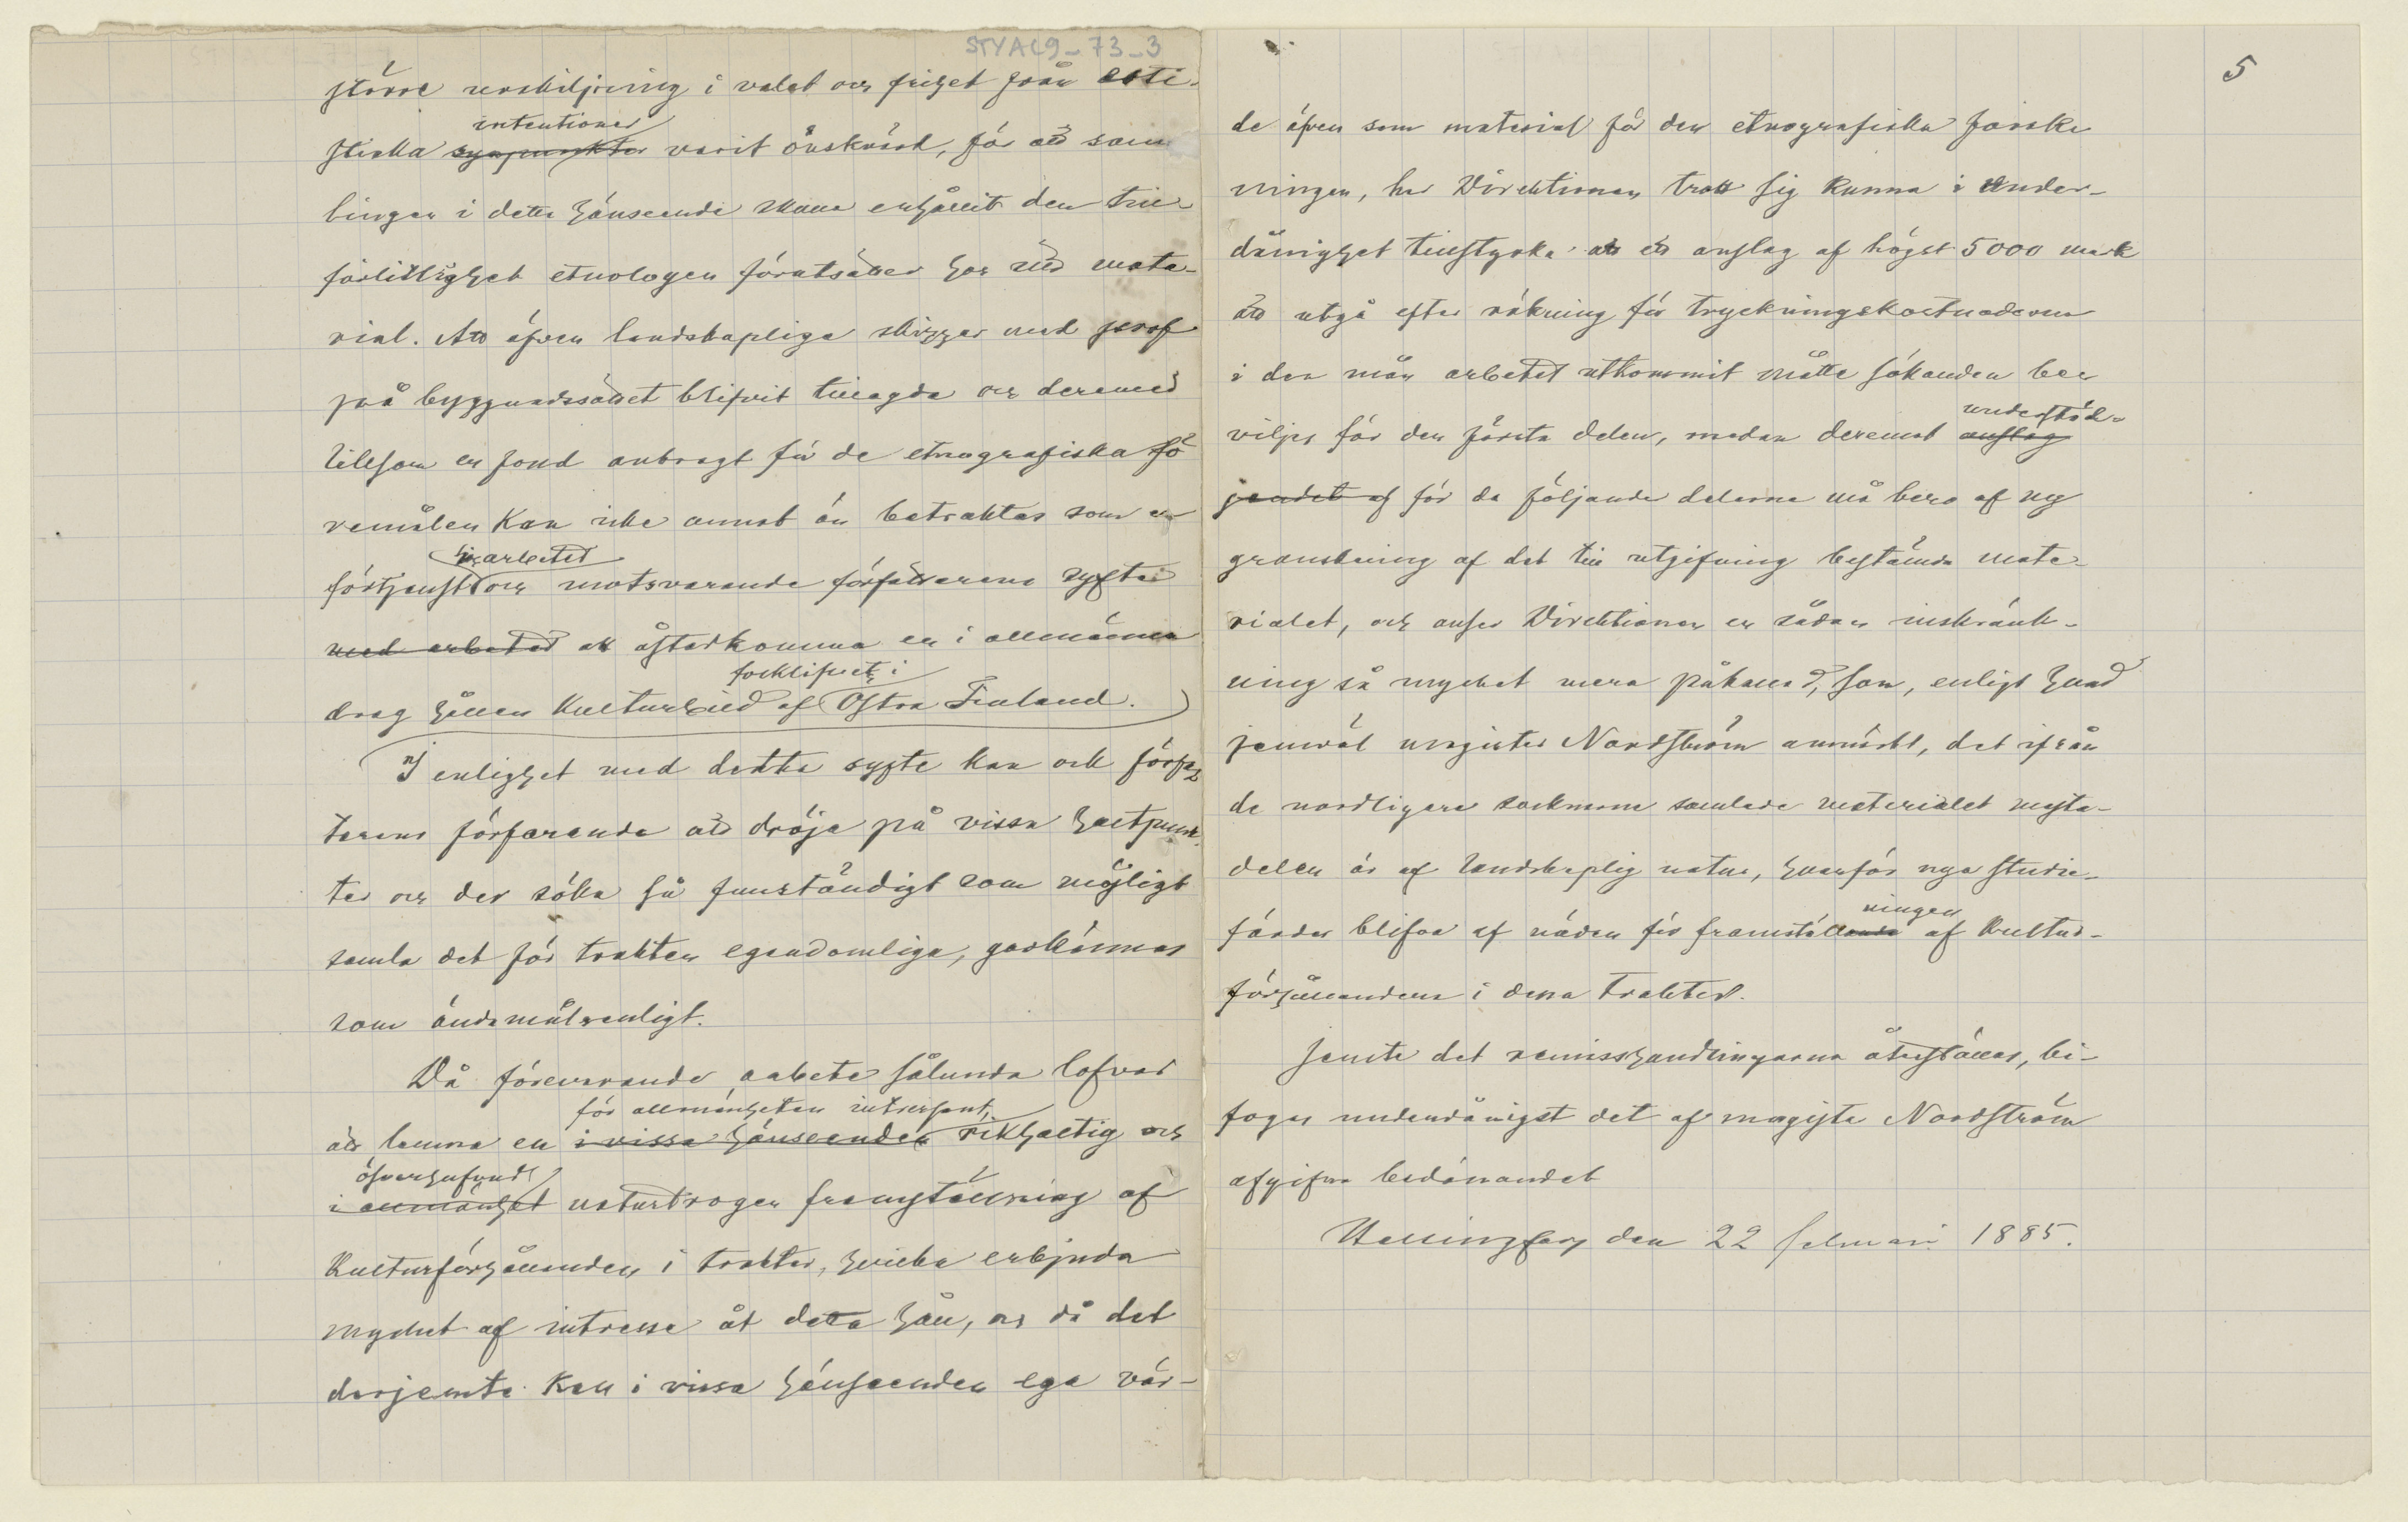 STYAL9_73_3
större urskiljning i valet och frihet från arti-
intentioner
stiska synpunkter varit önskvärd, för att sam-
lingen i detta hänseende skulle erhållit den till-
förlitlighet etnologen förutsätter hos sitt mate-
rial. Att äfven landskapliga skizzer med prof
på byggnadssättet blifvit tillagda och deremed
liksom en fond anbragt för de etnografiska fö-
remålen kan icke annat än betraktas som en
arbetet
förtjenst och motsvarande författarens syfte
med arbetet att åstadkomma en i allmänna
folklifvet i
drag hållen kulturbild af Östra Finland.
I enlighet med detta syfte kan och förfat-
tarens förfarande att dröja på vissa haltpunk-
ter och der söka så fullständigt som möjligt
samla det för trakten egendomliga, godkännas
som ändamålsenligt.
Då förevarande arbete sålunda lofvar
för allmänheten intressant,
att lemna en i vissa hänseenden rikhaltig och
öfverhufvud
i allmänhet naturtrogen framställning af
kulturförhållanden i trakter, hvilka erbjuda
mycket af intresse åt detta håll, och då det
derjemte kan i vissa hänseenden ega vär-
5
de äfven som material för den etnografiska forsk-
ningen, har Direktionen trott sig kunna i under-
dånighet tillstyrka att ett anslag af högst 5000 mark
att utgå efter räkning för tryckningskostnaderna
i den mån arbetet utkommit måtte sökanden be-
viljas för den första delen, medan deremot anslag
understöd-
jandet af för de följande delarne må bero af ny
granskning af det till utgifning bestämda mate-
rialet, och anser Direktionen en sådan inskränk-
ning så mycket mera påkallad, som, enligt hvad
jemväl magister Nordström anmärkt, det ifrån
de nordligare socknarna samlade materialet mesta-
delen är af landskaplig natur, hvarför nya studie-
ningen
färder blifva af nöden för framställande af kultur-
förhållandena i dessa trakter.
Jemte det remisshandlingarna återställas, bi-
fogas underdånigst det af magister Nordström
afgifna bedömandet
Helsingfors den 22 februari 1885.